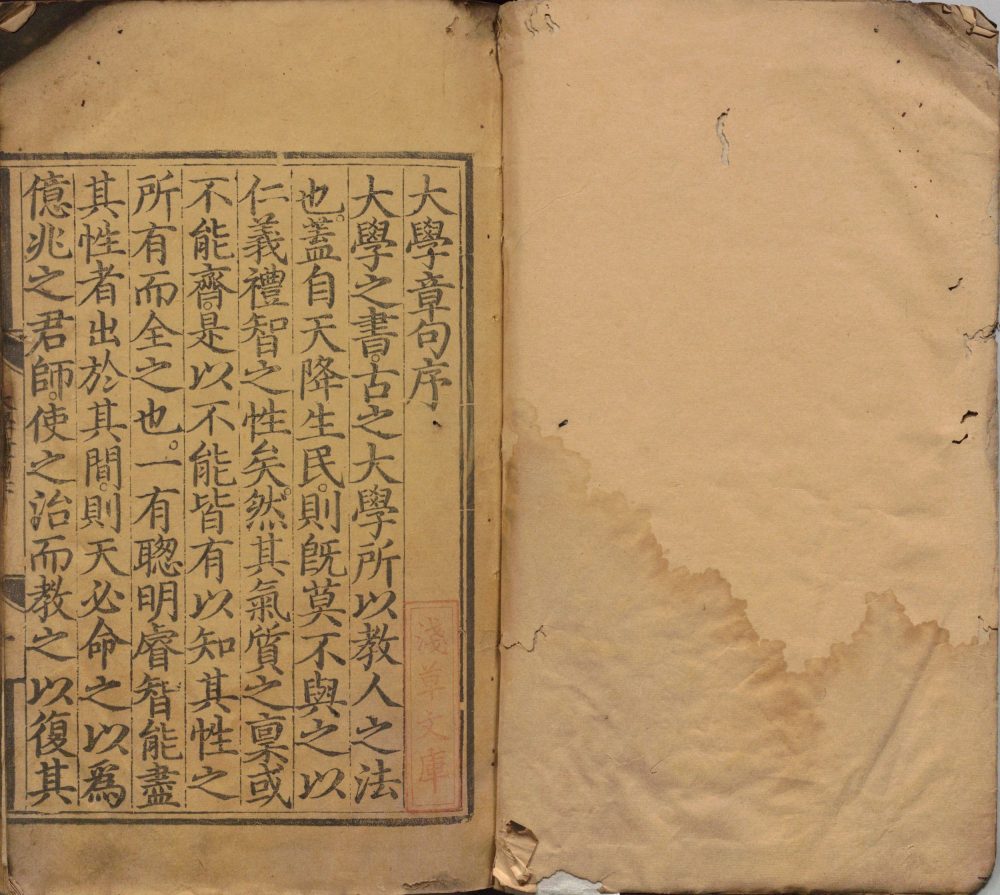 大學章句序
大學之書。古之大學所以教人之法
也。蓋自天降生民。則旣莫不與之以
仁義禮智之性矣。然其氣質之稟或
不能齊。是以不能皆有以知其性之
所有而全之也。一有聰明睿智能盡
其性者出於其閒。則天必命之以爲
億兆之君師。使之治而教之以復其
淺草文庫